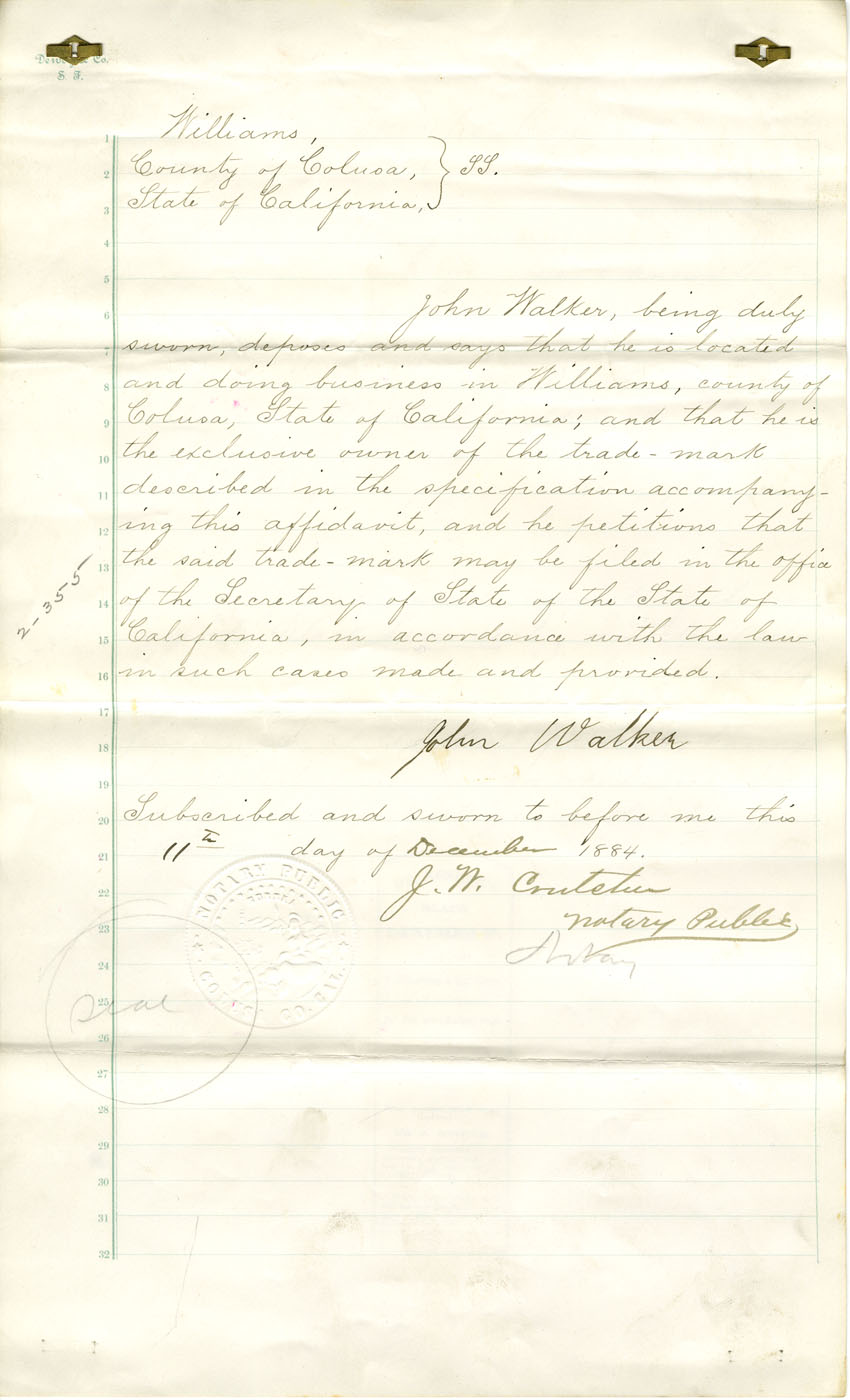 Dewey & Co.
S. F.
Williams,
County of Colusa, } SS.
State of California,
John Walker, being duly
sworn, deposes and says that he is located
and doing business in Williams, county of
Colusa, State of California; and that he is
the exclusive owner of the trade-mark
described in the specification accompany-
ing this affidavit, and he petitions that
the said trade-mark may be filed in the office
of the Secretary of State of the State of
California, in accordance with the law
in such cases made and provided.
2-355
John Walker
Subscribed and sworn to before me this
11th day of December 1884.
J. W. Crutcher
Notary Public
NOTARY PUBLIC
COLUSA CO. CAL.
Seal
1
2
3
4
5
6
7
8
9
10
11
12
13
14
15
16
17
18
19
20
21
22
23
24
25
26
27
28
29
30
31
32